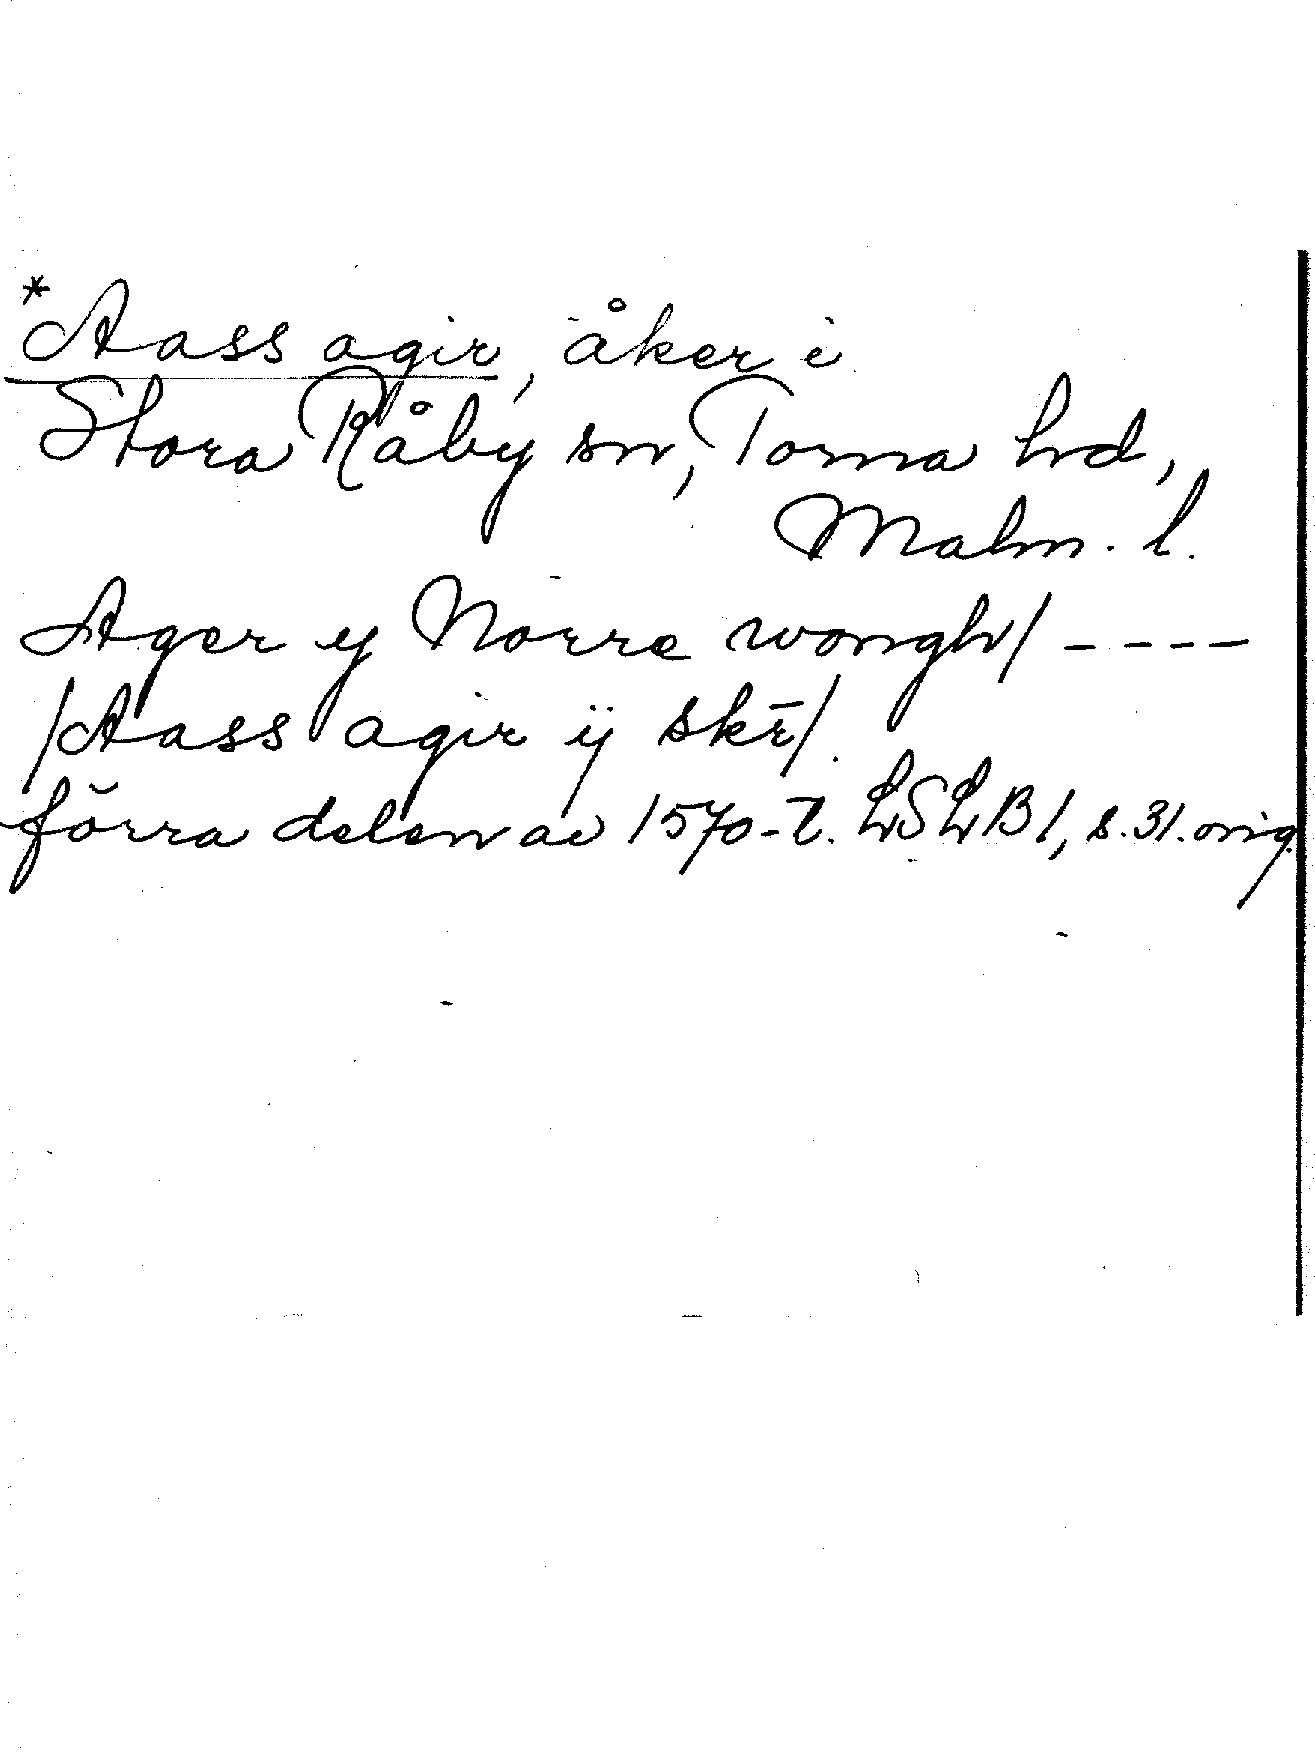 *Aass agir, åker i
Stora Råby sn, Torna hd,
Malm. l.
Ager y Norre wongh/ ----
/Aass agir ÿ skr̄/.
förra delen av 1570-t. LSLB 1, s. 31. orig.